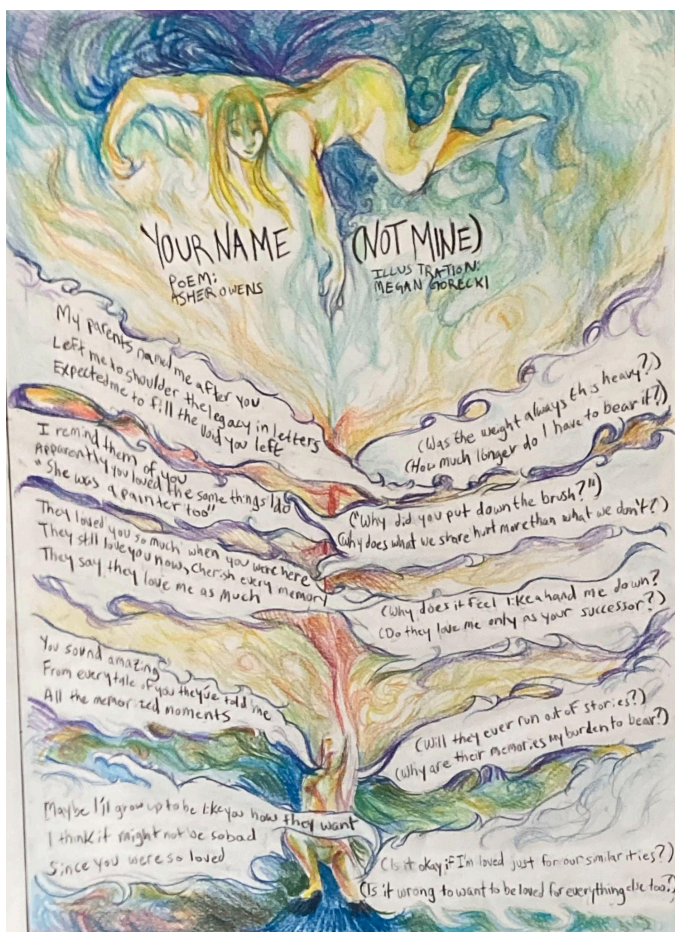 YOUR NAME (NOT MINE)
POEM:
ASHER OWENS
ILLUSTRATION:
MEGAN GORECKI
My parents named me after you
Left me to shoulder the legacy in letters
Expected me to fill the void you left
(Was the weight always this heavy?)
(How much longer do I have to bear it?)
I remind them of you
Apparently you loved the same things I do
"She was a painter too"
("Why did you put down the brush?")
(Why does what we share hurt more than what we don't?)
They loved you so much when you were here
They still love you now, cherish every memory
They say they love me as much
(Why does it feel like a hand me down?
(Do they love me only as your successor?)
You sound amazing
From every tale of you they've told me
All the memorized moments
(Will they ever run out of stories?)
(Why are their memories my burden to bear?)
Maybe I'll grow up to be like you how they want
I think it might not be so bad
Since you were so loved
(Is it okay if I'm loved just for our similarities?)
(Is it wrong to want to be loved for everything else too?)